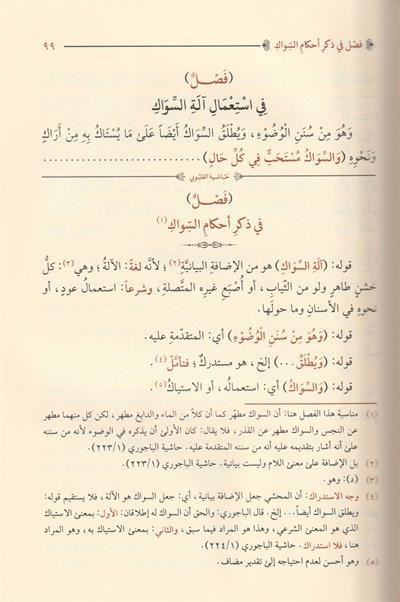 فَصْل في ذكر أحكام السِّواكِ ٩٩
(فَصْلٌ)
فِي اسْتِعْمَالِ آلَةِ السِّوَاكِ
وَهُوَ مِنْ سُنَنِ الْوُضُوْءِ، وَيُطْلَقُ السِّوَاكُ أَيْضَاً عَلَىٰ مَا يُسْتَاكُ بِهِ مِنْ أَرَاكٍ
وَنَحْوِهِ (وَالسِّوَاكُ مُسْتَحَبٌّ فِي كُلِّ حَالٍ) ......................................
حَاشية القليوبي
(فَصْلٌ)
في ذكرِ أحكامِ السِّواكِ (١)
قوله: (آلَةِ السِّوَاكِ) هو من الإضافةِ البيانيَّةِ(٢)؛ لأنَّه لغةً: الآلةُ؛ وهي(٣): كلُّ
خشنٍ طاهرٍ ولو من الثِّيابِ، أو أُصْبَعِ غيرِه المتَّصلةِ، وشرعاً: استعمالُ عودٍ، أو
نحوِه في الأسنانِ وما حولَها.
قوله: (وَهُوَ مِنْ سُنَنِ الْوُضُوْءِ) أي: المتقدِّمةِ عليه.
قوله: (وَيُطْلَقُ...) إلخ، هو مستدركٌ؛ فتأمَّلْ(٤).
قوله: (وَالسِّوَاكُ) أي: استعمالُه، أو الاستياكُ(٥).
(١) مناسبة هذا الفصل هنا: أن السواك مطهّر كما أن كلاً من الماء والدابغ مطهر، لكن كل منهما مطهر
عن النجس والسواك مطهر عن القذر، فلا يقال: كان الأولىٰ أن يذكره في الوضوء لأنه من سننه
علىٰ أنه أشار بتقديمه عليه أنه من سننه المتقدمة عليه. حاشية الباجوري (١/٢٢٣).
(٢) بل الإضافة علىٰ معنىٰ اللام وليست بيانية. حاشية الباجوري (١/٢٢٣).
(٣) (د): وهو.
(٤) وجه الاستدراك: أن المحشي جعل الإضافة بيانية، أي: جعل السواك هو الآلة، فلا يستقيم قوله:
ويطلق السواك أيضاً... إلخ. قال الباجوري: والحق أن السواك له إطلاقان: الأول: بمعنىٰ الاستياك
الذي هو المعنىٰ الشرعي، وهذا هو المراد فيما سبق، والثاني: بمعنىٰ الاستياك به، وهو المراد
هنا، فلا استدراك. حاشية الباجوري (١/٢٢٤).
(٥) وهو أحسن لعدم احتياجه إلىٰ تقدير مضاف.